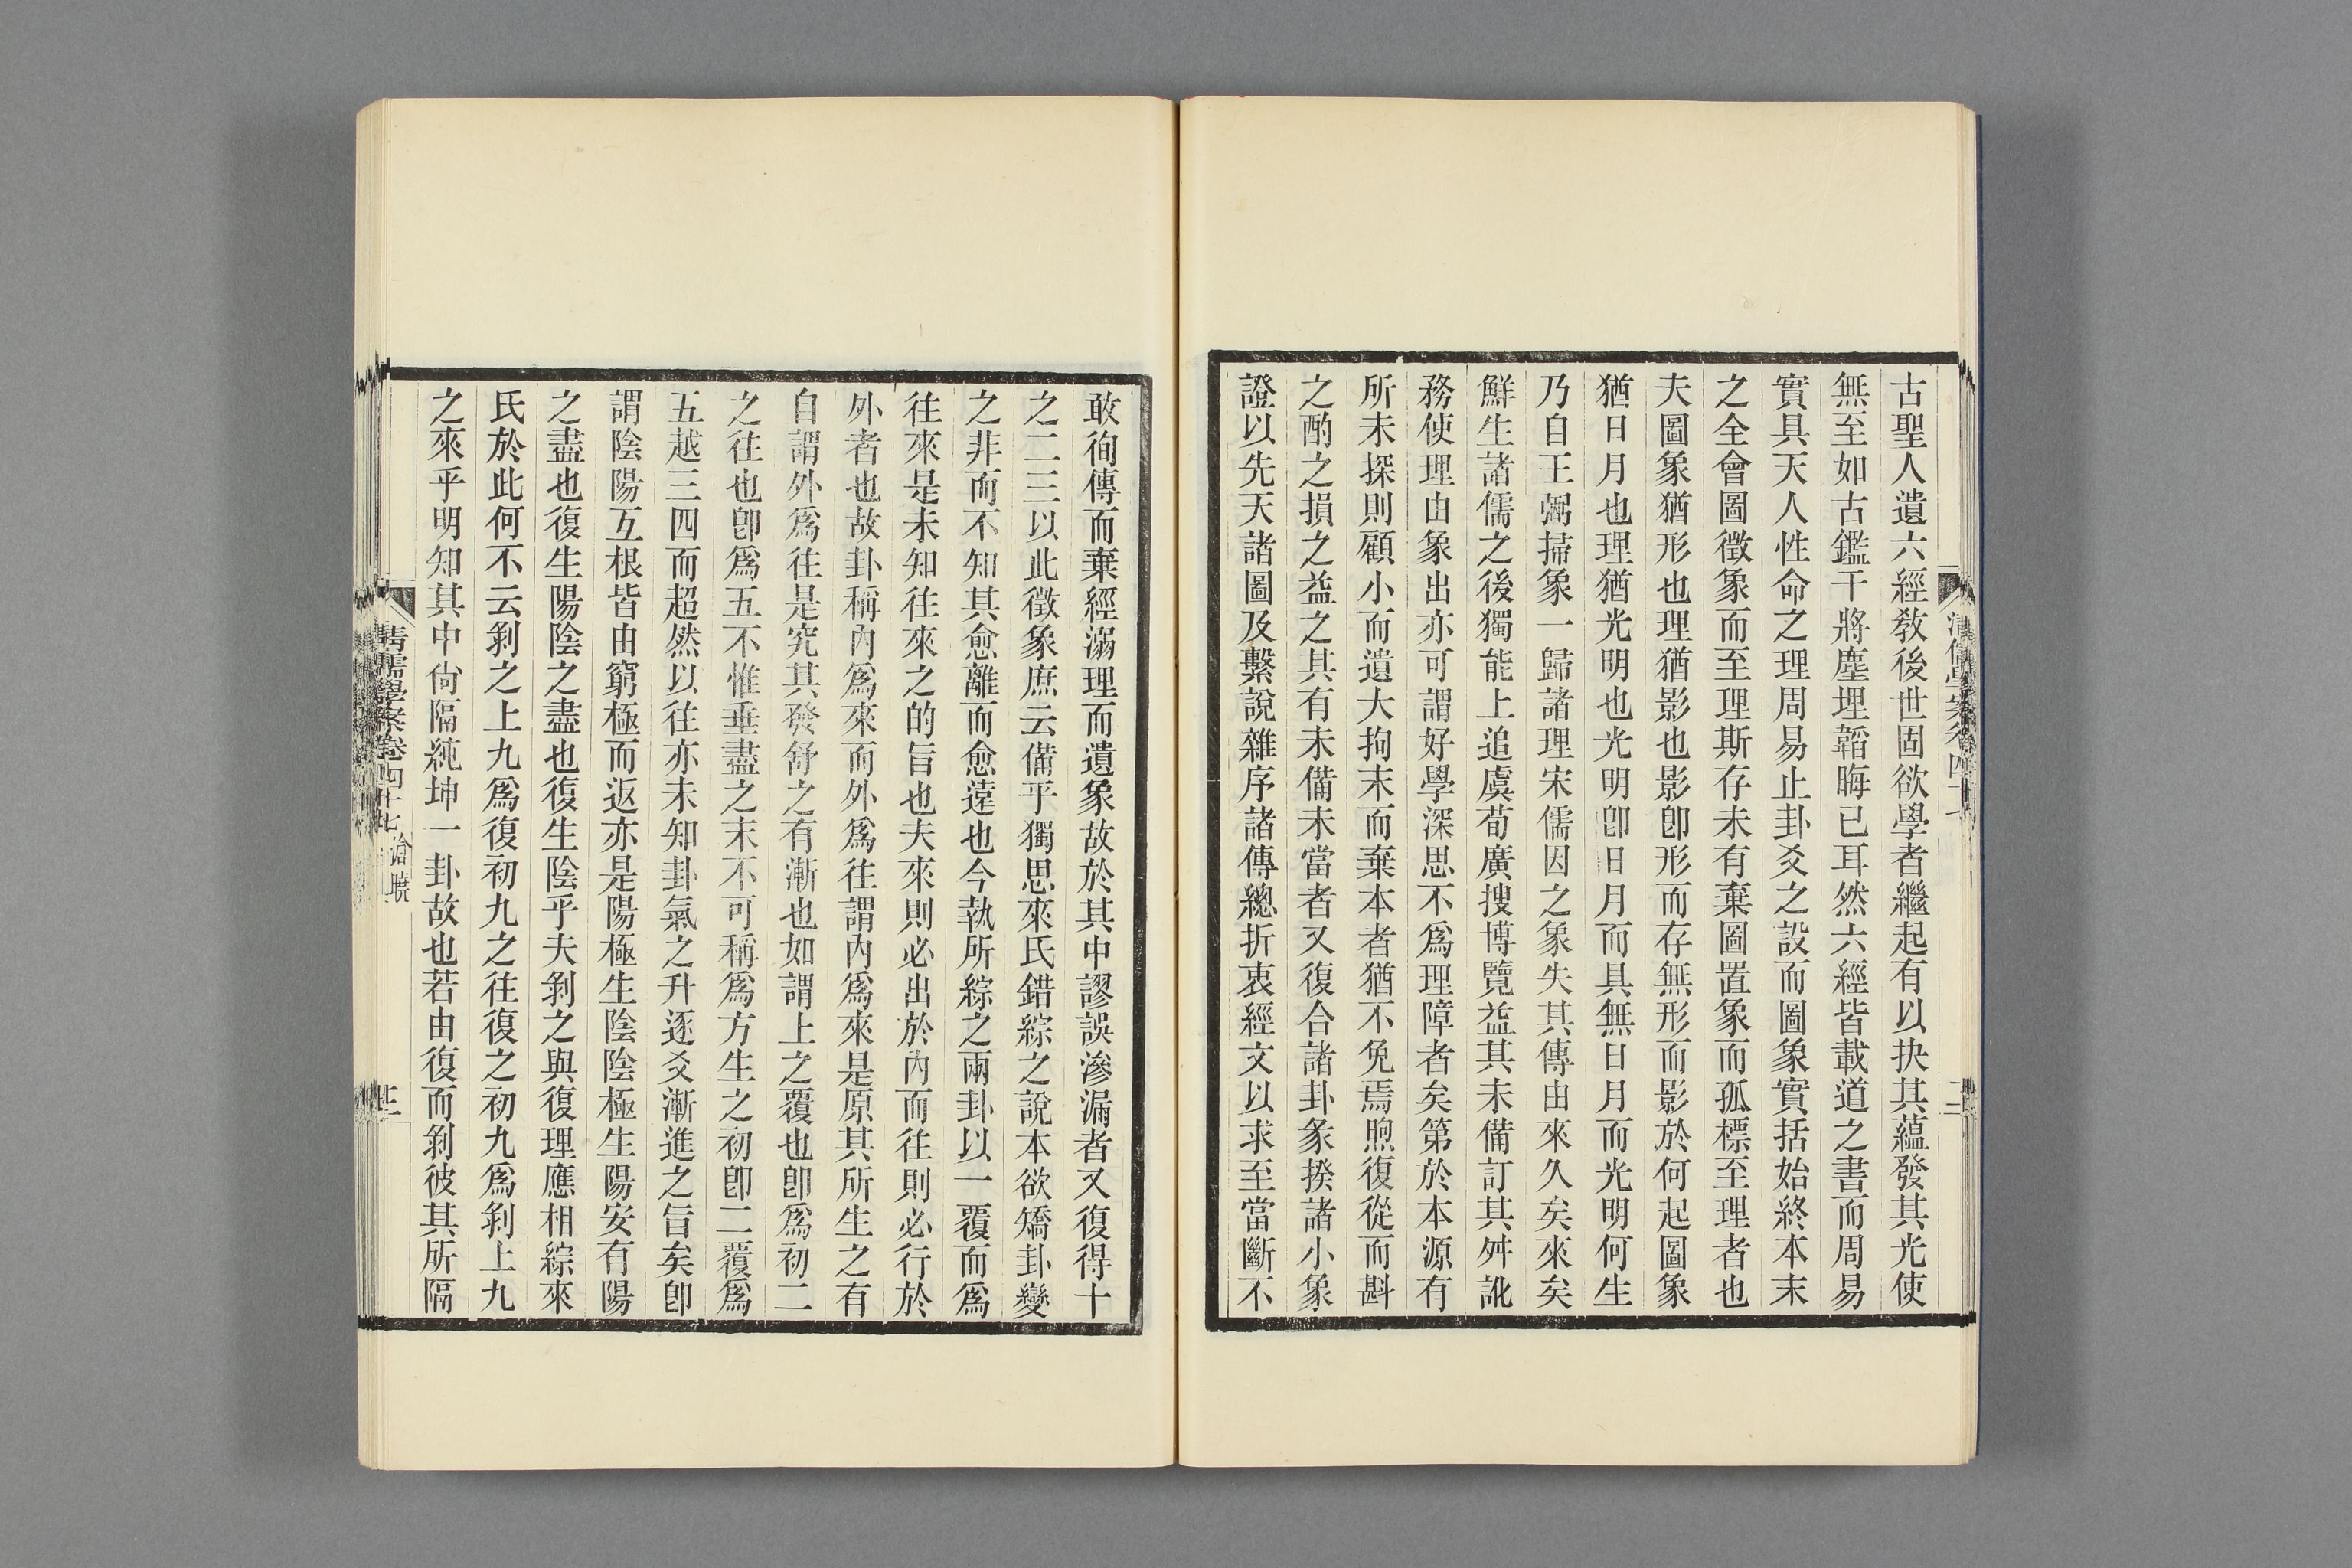 古聖人遺六經敎後世固欲學者繼起有以抉其蘊發其光使
無至如古鑑干將塵埋韜晦已耳然六經皆載道之書而周易
實具天人性命之理周易止卦爻之設而圖象實括始終本末
之全會圖徵象而至理斯存未有棄圖置象而孤標至理者也
夫圖象猶形也理猶影也影卽形而存無形而影於何起圖象
猶日月也理猶光明也光明卽日月而具無日月而光明何生
乃自王弼掃象一歸諸理宋儒因之象失其傳由來久矣來矣
鮮生諸儒之後獨能上追虞荀廣搜博覽益其未備訂其舛訛
務使理由象出亦可謂好學深思不爲理障者矣第於本源有
所未探則顧小而遺大拘末而棄本者猶不免焉煦復從而斟
之酌之損之益之其有未備未當者又復合諸卦彖揆諸小象
證以先天諸圖及繫說雜序諸傳總折衷經文以求至當斷不
敢徇傳而棄經溺理而遺象故於其中謬誤滲漏者又復得十
之二三以此徵象庶云備乎獨思來氏錯綜之說本欲矯卦變
之非而不知其愈離而愈遠也今執所綜之兩卦以一覆而爲
往來是未知往來之的旨也夫來則必出於內而往則必行於
外者也故卦稱內爲來而外爲往謂內爲來是原其所生之有
自謂外爲往是究其發舒之有漸也如謂上之覆也卽爲初二
之往也卽爲五不惟垂盡之末不可稱爲方生之初卽二覆爲
五越三四而超然以往亦未知卦氣之升逐爻漸進之旨矣卽
謂陰陽互根皆由窮極而返亦是陽極生陰陰極生陽安有陽
之盡也復生陽陰之盡也復生陰乎夫剝之與復理應相綜來
氏於此何不云剝之上九爲復初九之往復之初九爲剝上九
之來乎明知其中尙隔純坤一卦故也若由復而剝彼其所隔
清儒學案卷四十七